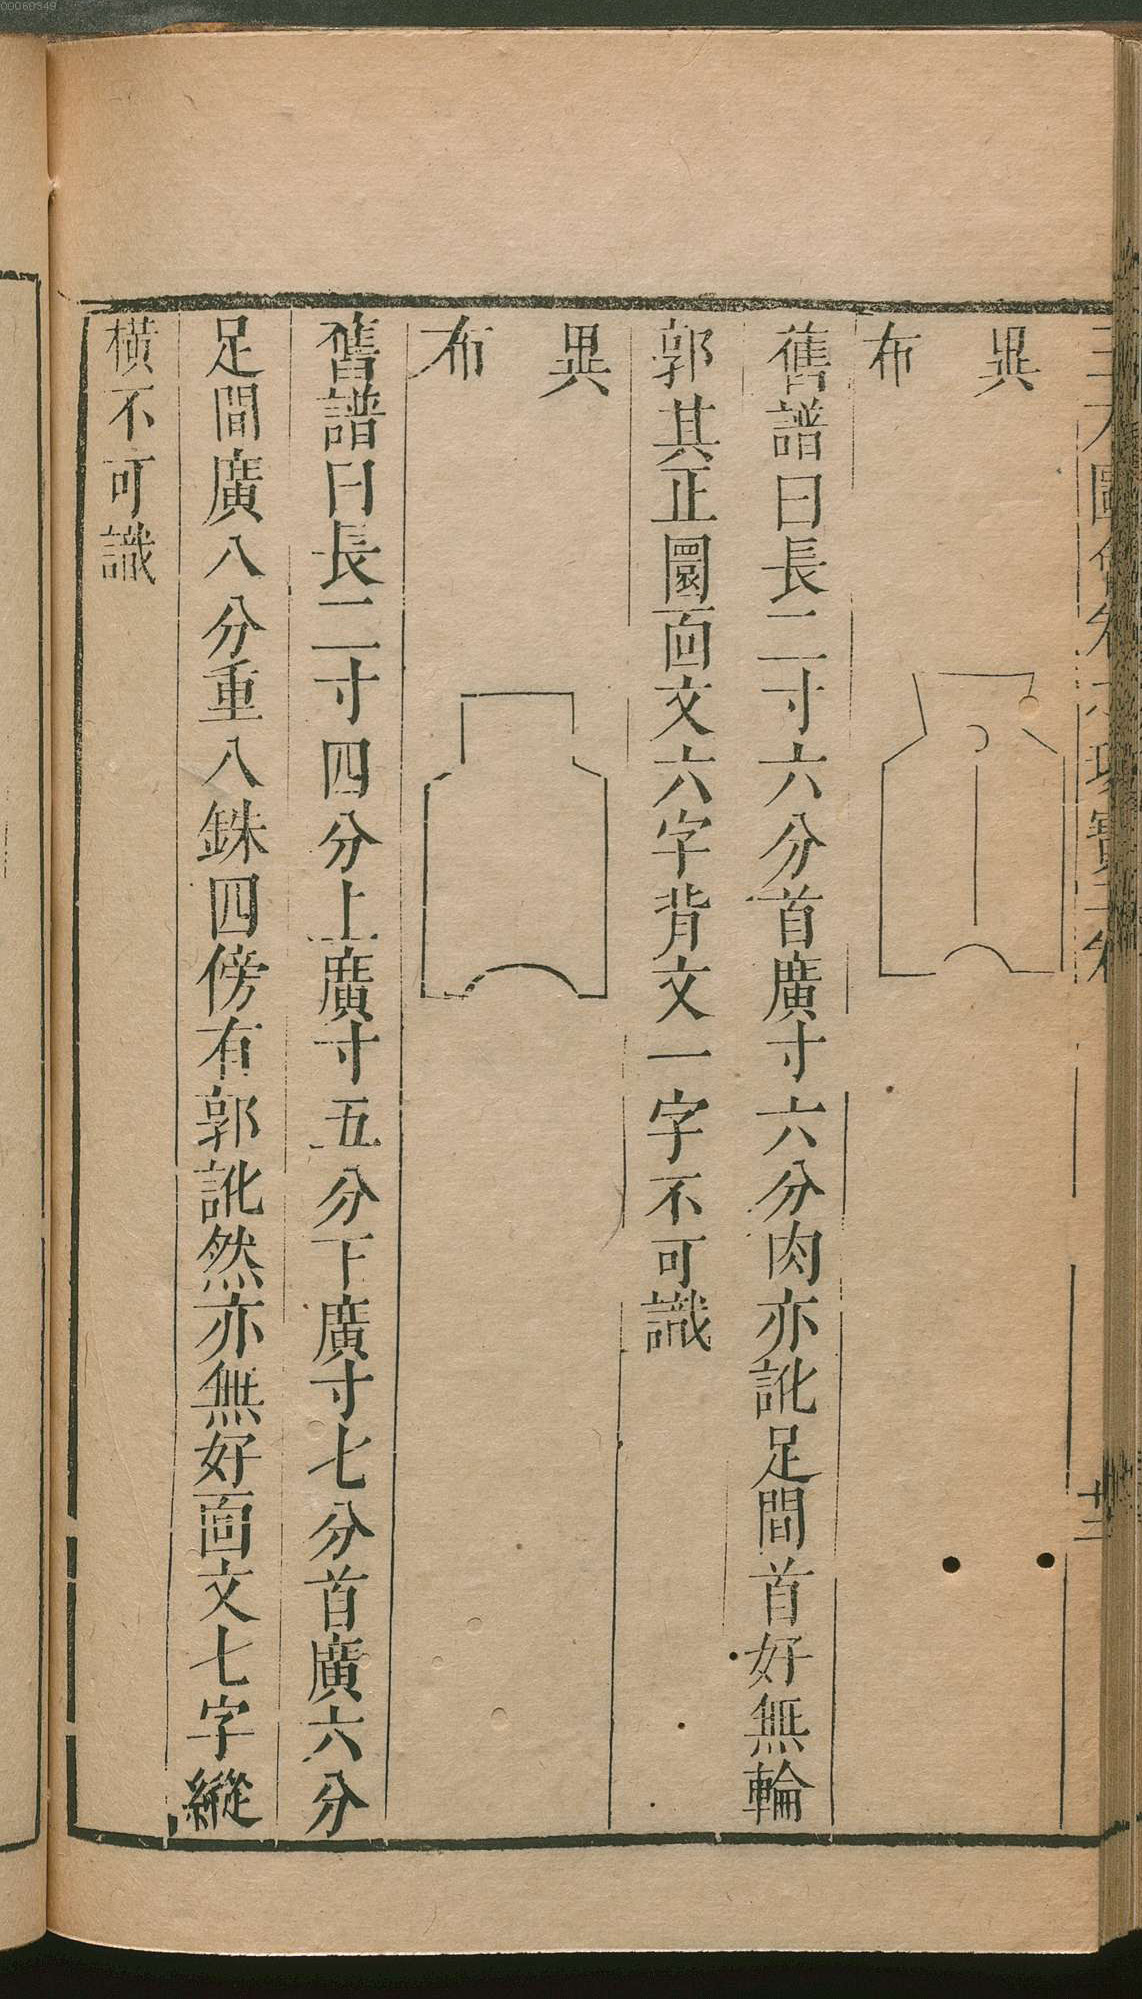 異
布
舊譜曰長二寸六分首廣寸六分肉亦訛足間首好無輪
郭其正圜面文六字背文一字不可識
異
布
舊譜曰長二寸四分上廣寸五分下廣寸七分首廣六分
足間廣八分重八銖四傍有郭訛然亦無好面文七字縱
橫不可識
00060349